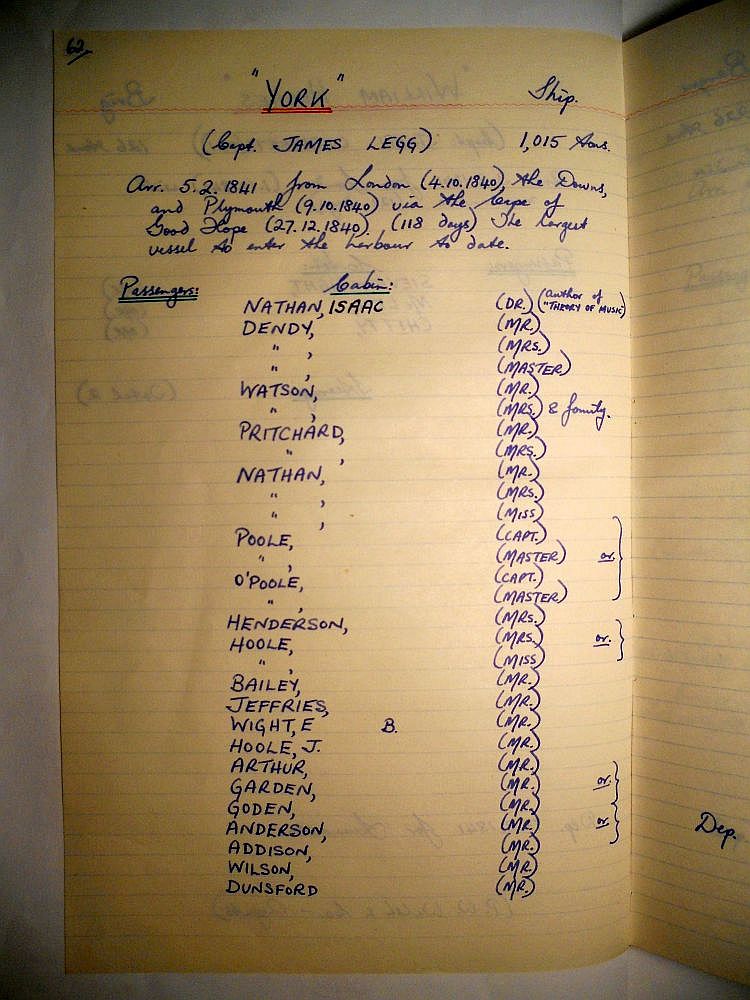 62.
"YORK" Ship.
(Capt. JAMES LEGG) 1,015 tons.
Arr. 5.2.1841 from London (4.10.1840), the Downs,
and Plymouth (9.10.1840) via the Cape of
Good Hope (27.12.1840). (118 days) The largest
vessel to enter the harbour to date.
Passengers: Cabin:
NATHAN, ISAAC (DR.) (author of "THEORY OF MUSIC")
DENDY, (MR.)
" , (MRS.)
" , (MASTER)
WATSON, (MR.)
" , (MRS.) & family.
PRITCHARD, (MR.)
" , (MRS.)
NATHAN, (MR.)
" , (MRS.)
" , (MISS)
POOLE, (CAPT.)
" , (MASTER) or
O'POOLE, (CAPT.)
" , (MASTER)
HENDERSON, (MRS.)
HOOLE, (MRS.) or.
" , (MISS)
BAILEY, (MR.)
JEFFRIES, (MR.)
WIGHT, E B. (MR.)
HOOLE, J. (MR.)
ARTHUR, (MR.)
GARDEN, (MR.) or.
GODEN, (MR.)
ANDERSON, (MR.) or.
ADDISON, (MR.)
WILSON, (MR.)
DUNSFORD (MR.)
Dep.